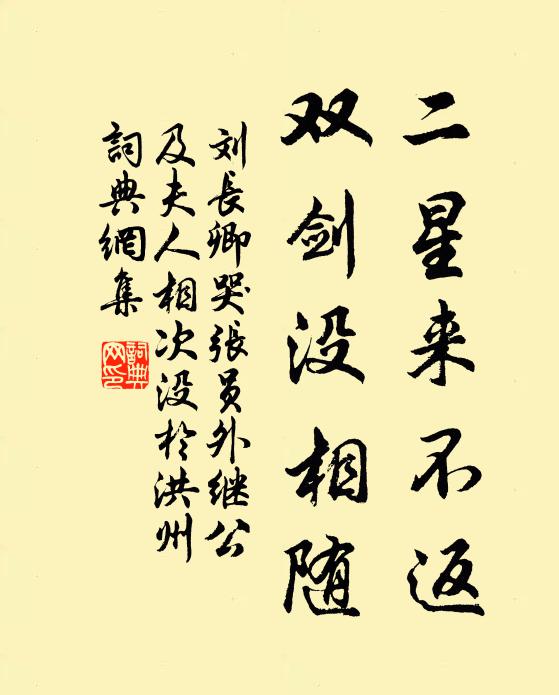 二星来不返
双剑没相随
刘長卿哭張员外继公
及夫人相次没於洪州
詞典網集
詞典网印